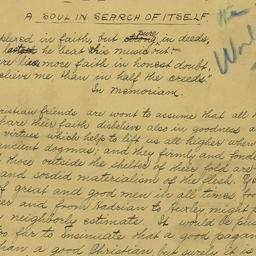 A SOUL IN SEARCH OF ITSELF.
the
plexed in faith, but pure in deeds,
he beat this music out—
more faith in honest doubt,
lieve me, than in half the creeds."
In Memoriam.
ristian friends are wont to assume that all
hare their faith disbelieve also in goodness a
virtues which help to lift us all higher where
ancient dogmas; and they firmly and fond
those outside the shelter of their fold are
and sordid materialism of the flesh.
of great and good men in all times
er and from Hadrian to Huxley might
neighborly estimate. It would be
so far to insinuate that a good pagan
than a good Christian but surely it is